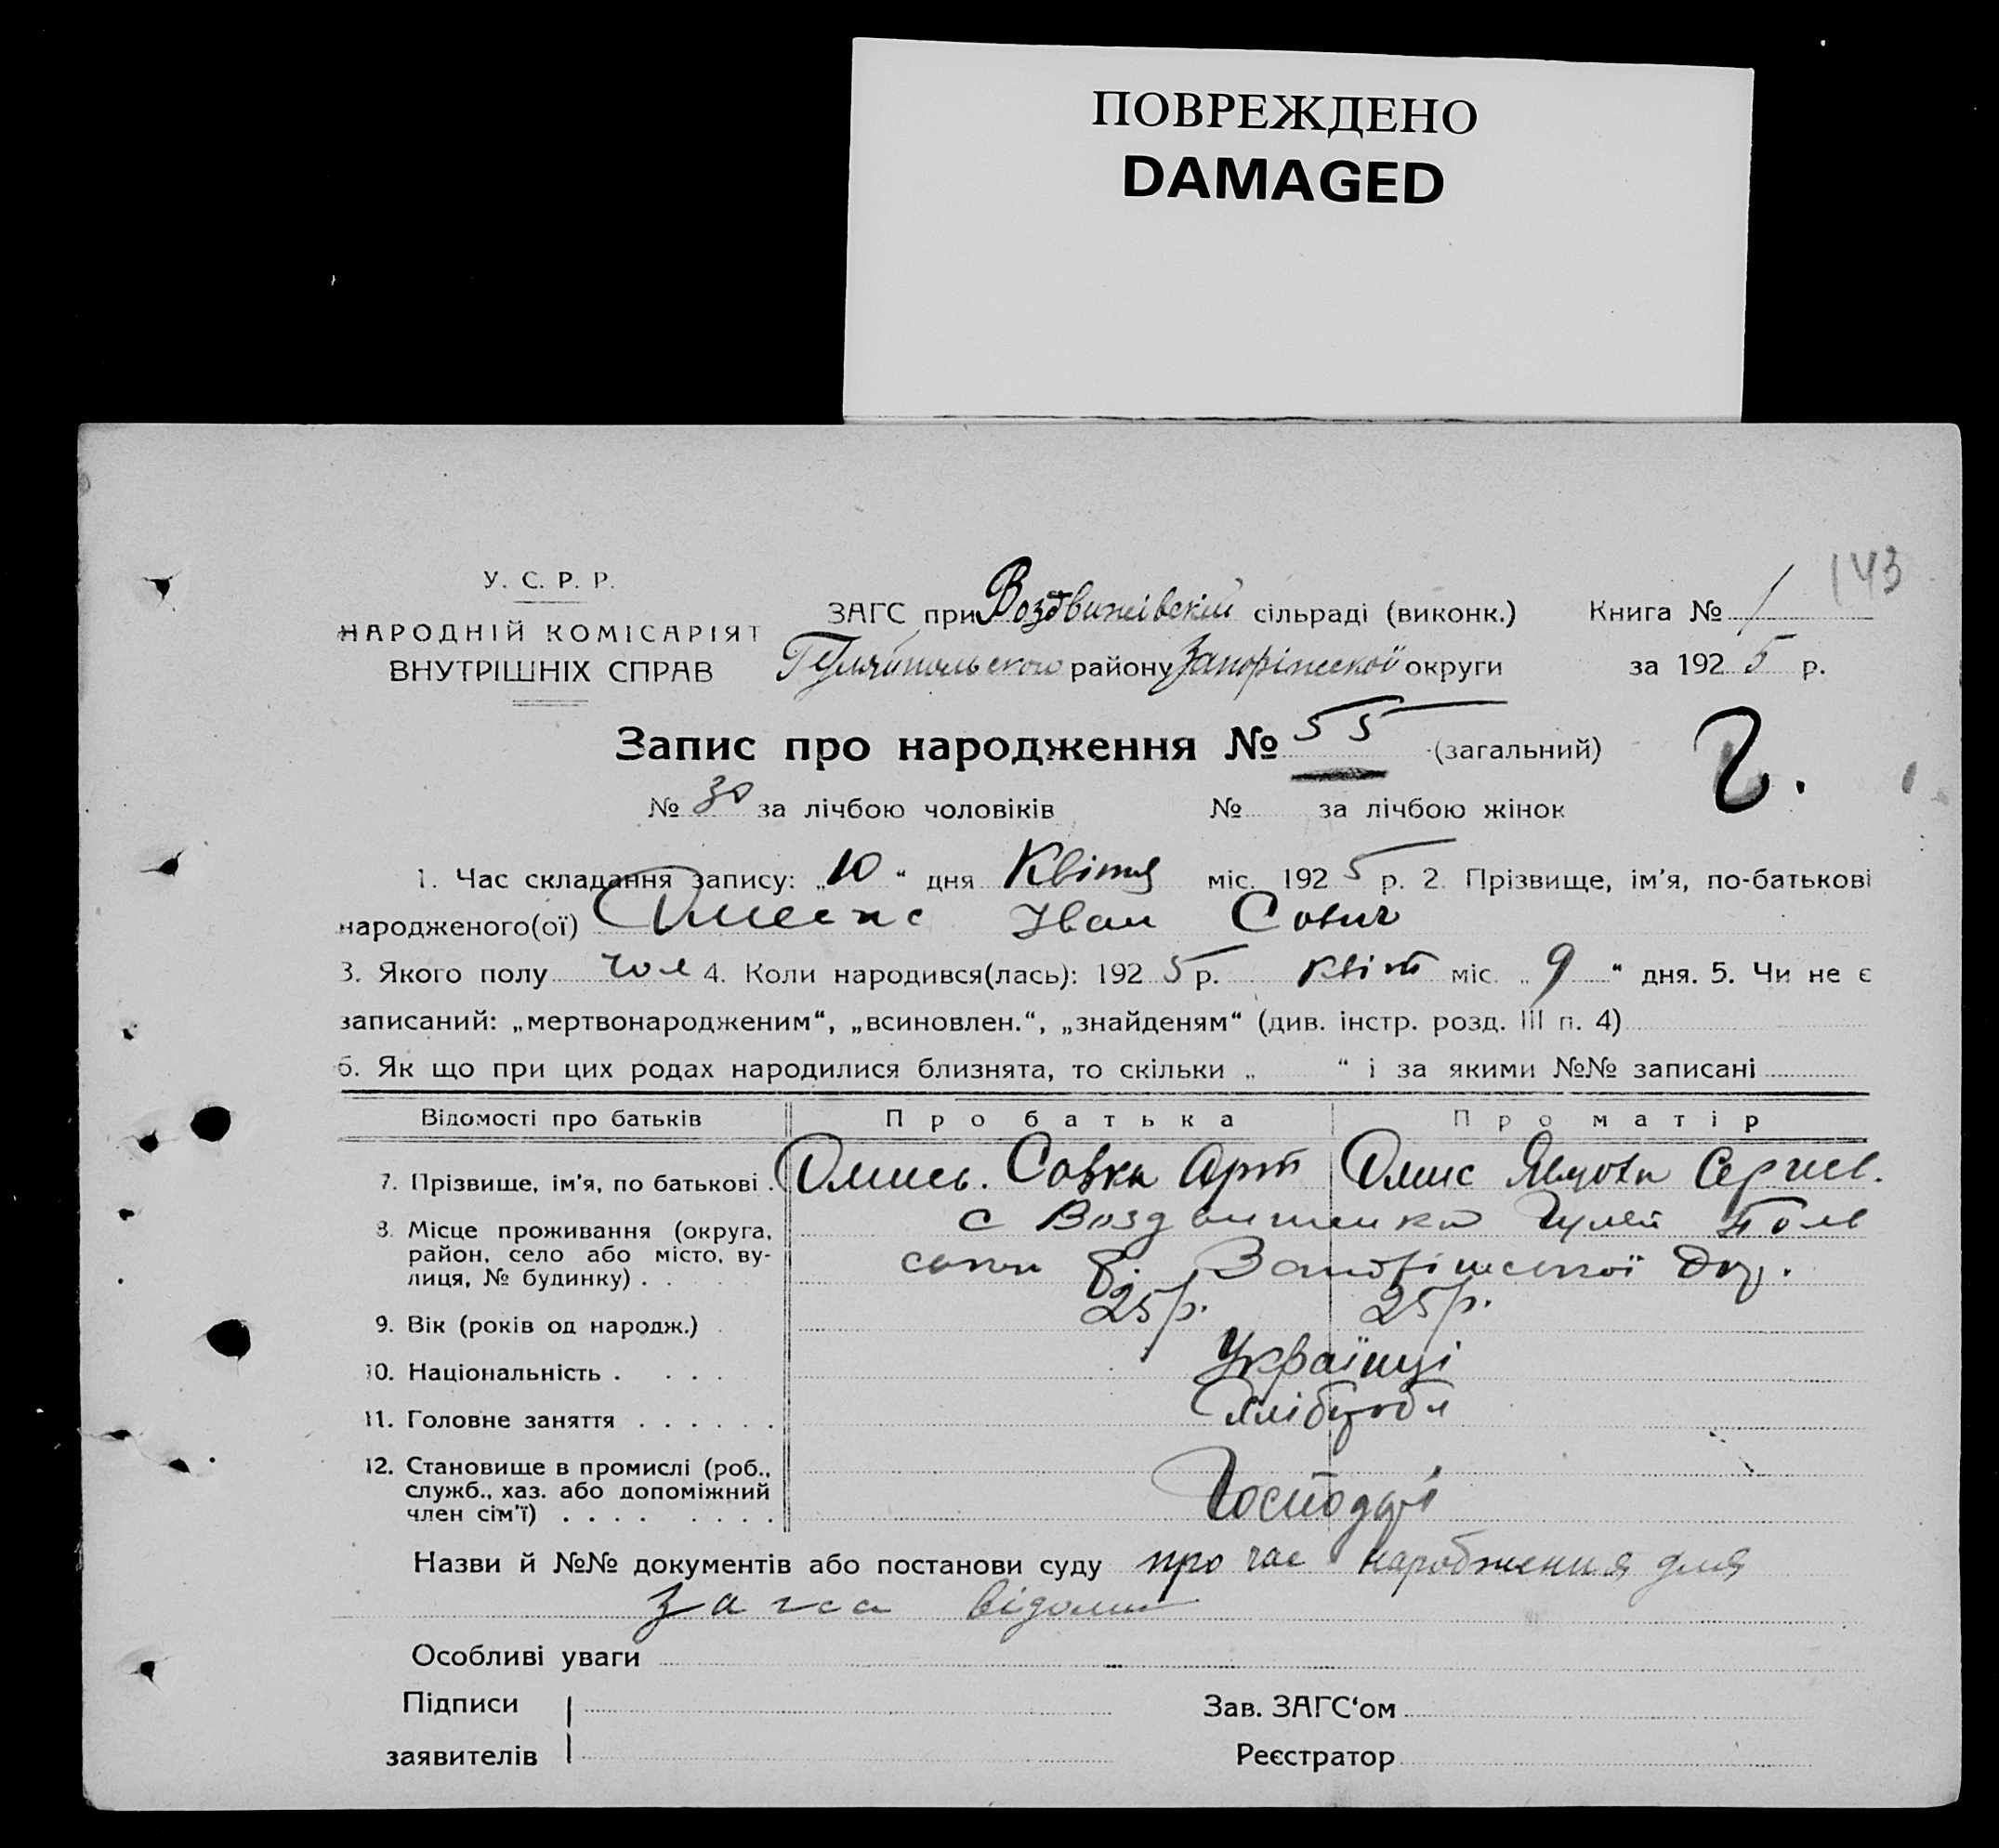 ПОВРЕЖДЕНО
DAMAGED
143
У. С. Р. Р.
НАРОДНІЙ КОМІСАРІЯТ
ВНУТРІШНІХ СПРАВ
ЗАГС при Воздвижівській сільраді (виконк.) Книга № 1
Гуляйпольського району Запоріжської округи за 1925 р.
Запис про народження № 55 (загальний)
2.
№ 30 за лічбою чоловіків № за лічбою жінок
1. Час складання запису: „10“ дня Квітня міс. 1925 р. 2. Прізвище, ім'я, по-батькові
народженого(ої) Іван Сович
3. Якого полу чол 4. Коли народився(лась): 1925 р. квіт міс. „9“ дня. 5. Чи не є
записаний: „мертвонародженим“, „всиновлен.“, „знайденям“ (див. інстр. розд. III п. 4)
6. Як що при цих родах народилися близнята, то скільки „ “ і за якими №№ записані
Відомості про батьків Про батька Про матір
7. Прізвище, ім'я, по батькові . Совка Арт Сергиев.
8. Місце проживання (округа, район, село або місто, вулиця, № будинку) . . с Воздвиженка Гуляй Поль
Запоріжської
9. Вік (років од народж.) . 25 р. 25 р.
10. Національність . . . . Українці
11. Головне заняття . . . . . . Хлібороб
12. Становище в промислі (роб., служб., хаз. або допоміжний член сім'ї) . . . . . . . . Господарі
Назви й №№ документів або постанови суду про час народження для
загса відоми
Особливі уваги
Підписи Зав. ЗАГС‘ом
заявителів Реєстратор